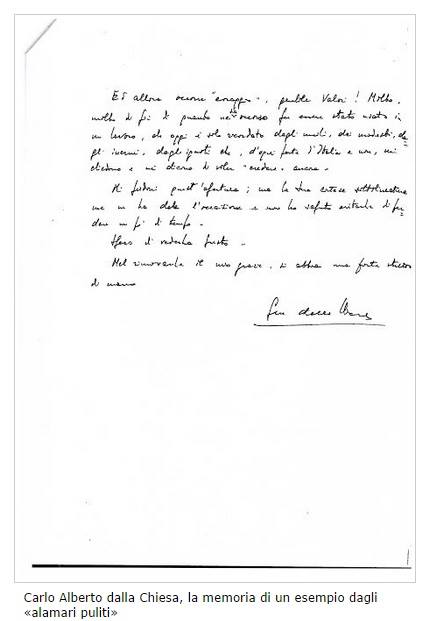 Ed allora occorre "coraggio", gentile Valori! Molto,
molto di più di quanto non fu mai stato usato in
un lavoro, che oggi è solo ricordato dagli umili, dai modesti, da-
gli inermi, dagli ignoti che, d'ogni parte d'Italia e non, mi
chiedono e mi dicono di voler "credere" ancora.
Mi perdoni quest'apertura; ma la Sua cortese sottolineatura
me ne ha dato l'occasione e non ho saputo evitarle di per-
dere un po' di tempo.
Spero di vederla presto.
Nel rinnovarle il mio grazie, si abbia una forte stretta
di mano
Carlo Alberto dalla Chiesa, la memoria di un esempio dagli
«alamari puliti»